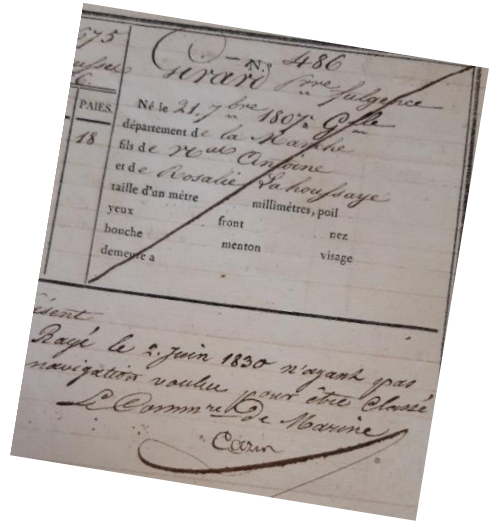 675
N.° 486
Girard Pre fulgence
PAIES.
Né le 21. 7bre 1807 Glle
département de la Manche
18
fils de Antoine
et de Rosalie Lahoussaye
taille d'un mètre millimètres, poil
yeux front nez
bouche menton visage
demeure a
ésent
Rayé le 2. Juin 1830 n'ayant pas
navigation voulue pour être Classé
Le Commre de Marine
Cazin